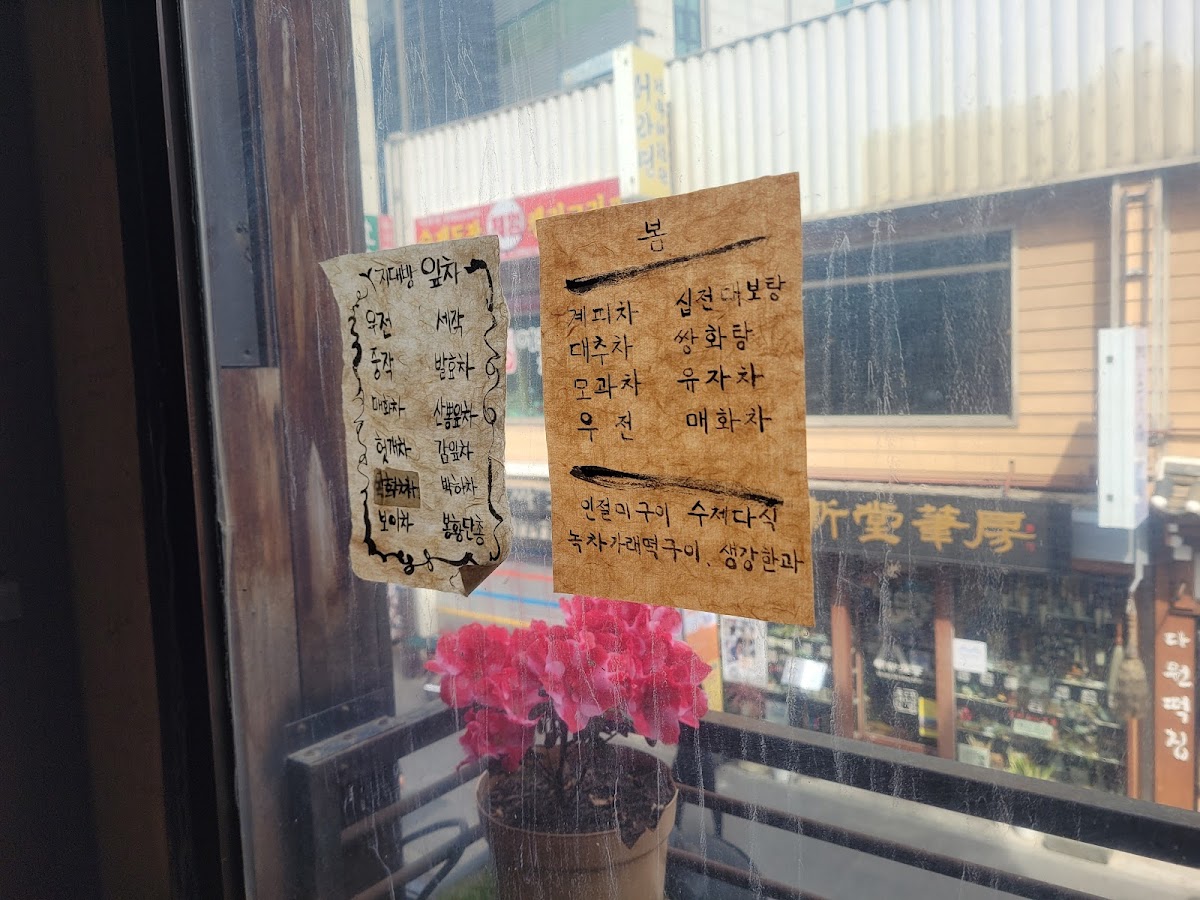 지대방 잎차
우전 세작
중작 발효차
매화차 산뽕잎차
헛개차 감잎차
박하차
보이차 봉황단총
봄
계피차 십전대보탕
대추차 쌍화탕
모과차 유자차
우전 매화차
인절미구이 수제다식
녹차가래떡구이, 생강한과
堂筆房
다원떡집